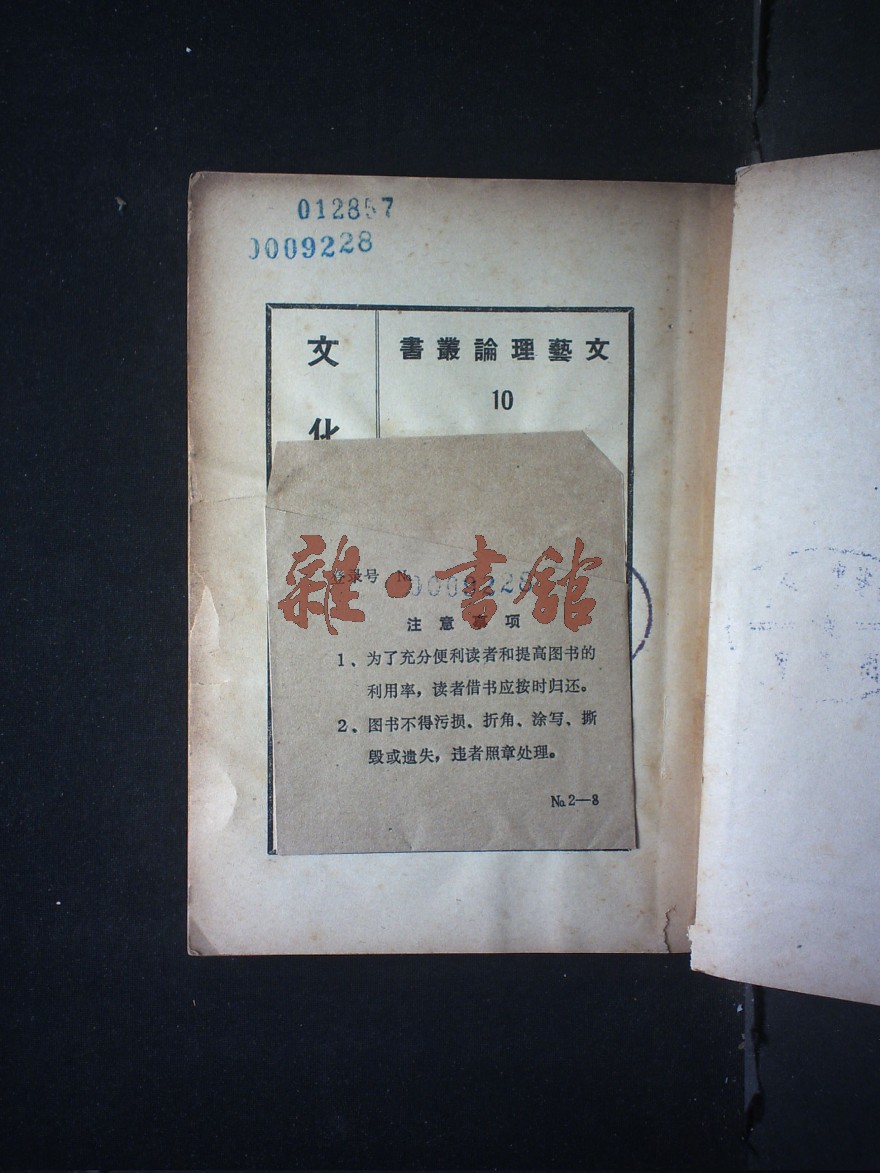 012857
0009228
書叢論理藝文
10
文化
雜·書館
登录号 No 0009228
注意事项
1、为了充分便利读者和提高图书的
利用率，读者借书应按时归还。
2、图书不得污损、折角、涂写、撕
毁或遗失，违者照章处理。
No. 2—8